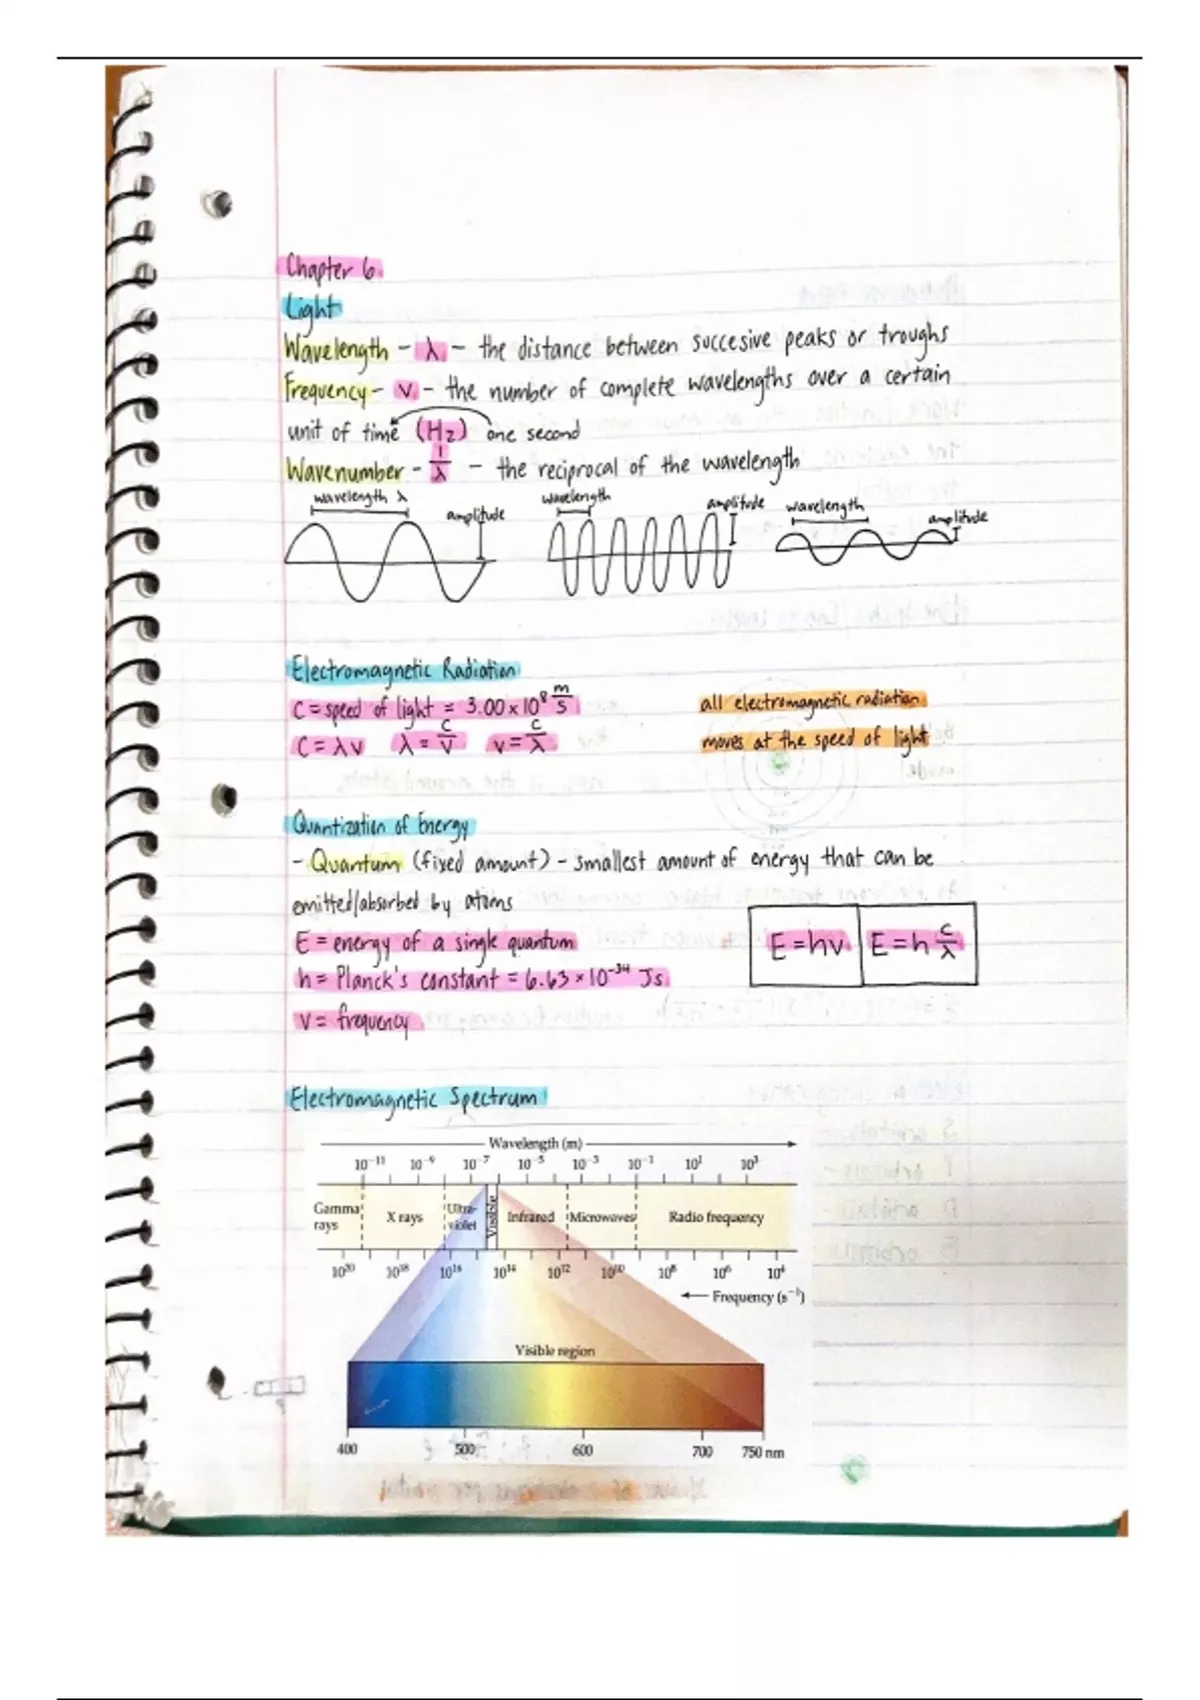 Chapter 6
Light
Wavelength - λ - the distance between succesive peaks or troughs
Frequency - ν - the number of complete wavelengths over a certain
unit of time (Hz) one second
Wavenumber - 1/λ - the reciprocal of the wavelength
wavelength λ amplitude wavelength amplitude wavelength amplitude
Electromagnetic Radiation
C = speed of light = 3.00 x 10⁸ m/s all electromagnetic radiation
C = λν λ = c/ν ν = c/λ moves at the speed of light
Quantization of Energy
- Quantum (fixed amount) - smallest amount of energy that can be
emitted/absorbed by atoms
E = energy of a single quantum E = hν E = h c/λ
h = Planck's constant = 6.63 × 10⁻³⁴ Js
ν = frequency
Electromagnetic Spectrum
Wavelength (m)
10⁻¹¹ 10⁻⁹ 10⁻⁷ 10⁻⁵ 10⁻³ 10⁻¹ 10¹ 10³
Gamma rays X rays Ultra-violet Visible Infrared Microwaves Radio frequency
10²⁰ 10¹⁸ 10¹⁶ 10¹⁴ 10¹² 10¹⁰ 10⁸ 10⁶ 10⁴
Frequency (s⁻¹)
Visible region
400 500 600 700 750 nm